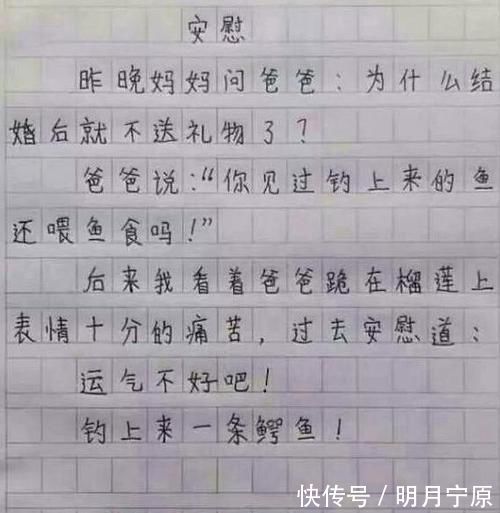 安慰
昨晚妈妈问爸爸：为什么结
婚后就不送礼物了？
爸爸说：“你见过钓上来的鱼
还喂鱼食吗！”
后来我看着爸爸跪在榴莲上
表情十分的痛苦，过去安慰道：
运气不好吧！
钓上来一条鳄鱼！
快传号／明月宁原